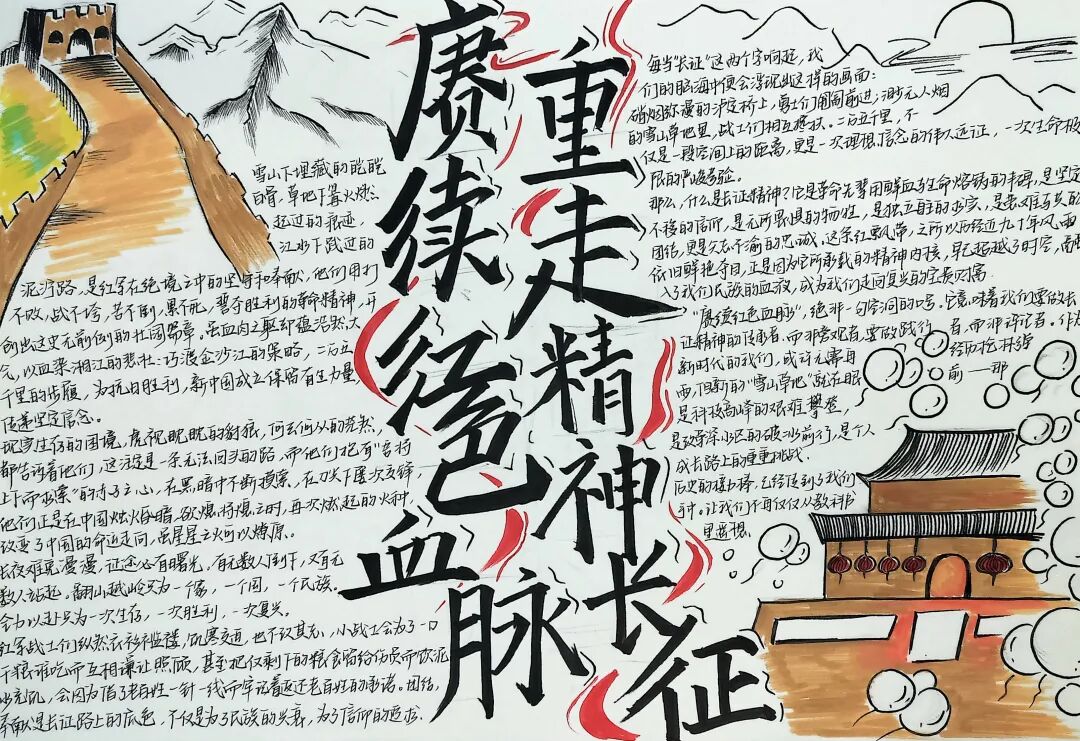 重走精神长征
赓续红色血脉
每当“长征”这两个字响起，我
们的脑海中便会浮现出这样的画面：
硝烟弥漫的泸定桥上，勇士们匍匐前进；渺无人烟
的雪山草地里，战士们相互搀扶。二万五千里，不
仅是一段空间上的距离，更是一次理想信念的伟大远征，一次生命极
限的严峻考验。
那么，什么是长征精神？它是革命先辈用鲜血与生命熔铸的丰碑，是坚定
不移的信仰，是无所畏惧的牺牲，是独立自主的求实，是患难与共的
团结，更是矢志不渝的忠诚。这条红飘带，之所以历经近九十年风雨
依旧鲜艳夺目，正是因为它所承载的精神内核，早已超越了时空，
入了我们民族的血液，成为我们走向复兴的宝贵财富
“赓续红色血脉”，绝非一句空洞的口号。它意味着我们要做长
征精神的传承者，而非旁观者，要做践行者，而非评论者。作为
新时代的我们，或许无需再经历枪林弹
雨，但新的“雪山草地”就在眼前——那
是科技高峰的艰难攀登，
是改革深水区的破冰前行，是个人
成长路上的重重挑战。
历史的接力棒，已经传到了我们
手中，让我们不再仅仅从教科书
里遥想
雪山下埋藏的皑皑
白骨，草地下篝火燃
起过的痕迹，
江水下践过的
泥泞路，是红军在绝境之中的坚守和奉献，他们用打
不败，战不垮，苦不倒，累不死，誓夺胜利的革命精神，开
创出这史无前例的壮阔篇章。虽血肉之躯却蕴浩然大
气，以血染湘江的悲壮，巧渡金沙江的策略，二万五
千里的步履，为抗日胜利，新中国成立保留有生力量，
传递坚定信念。
现实生存的困境，虎视眈眈的豺狼，何去何从的茫然，
都告诉着他们，这注定是一条无法回头的路，而他们抱有“吾将
上下而求索”的赤子之心，在黑暗中不断摸索，在刀尖下屡次交锋，
他们正是在中国烛火昏暗，欲熄将熄之时，再次燃起的火种，
改变了中国的命运走向，虽星星之火可以燎原。
长夜难竟漫漫，征途必有曙光，有无数人倒下，又有无
数人站起。翻山越岭只为一个家，一个国，一个民族。
全力以赴只为一次生存，一次胜利，一次复兴。
红军战士们纵然衣衫褴褛，饥寒交迫，也不改其志，小战士会为了一口
干粮谁吃而互相谦让照顾，甚至把仅剩下的粮食留给伤员而饮泥
水充饥，会因为借了老百姓一针一线而牢记着返还老百姓的承诺。团结，
奉献是长征路上的底色，不仅是为了民族的兴衰，为了信仰的追求，